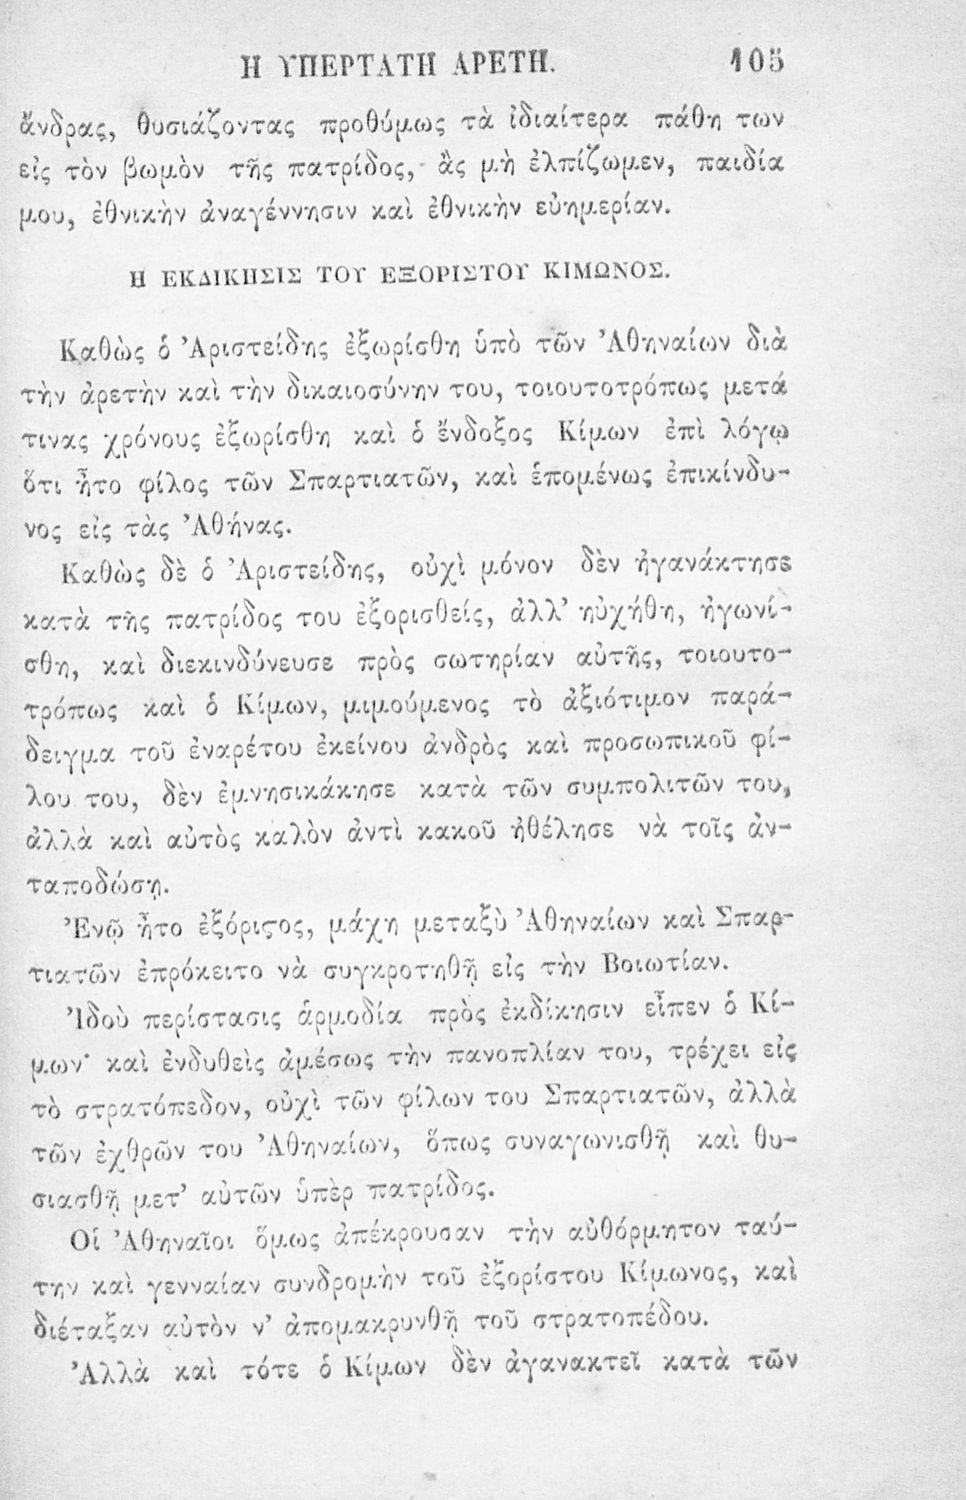 Η ΥΠΕΡΤΑΤΗ ΑΡΕΤΗ. 105
ἄνδρας, θυσιάζοντας προθύμως τὰ ἰδιαίτερα πάθη των
εἰς τὸν βωμὸν τῆς πατρίδος, ἂς μὴ ἐλπίζωμεν, παιδία
μου, ἐθνικὴν ἀναγέννησιν καὶ ἐθνικὴν εὐημερίαν.
Η ΕΚΔΙΚΗΣΙΣ ΤΟΥ ΕΞΟΡΙΣΤΟΥ ΚΙΜΩΝΟΣ.
Καθὼς ὁ Ἀριστείδης ἐξωρίσθη ὑπὸ τῶν Ἀθηναίων διὰ
τὴν ἀρετὴν καὶ τὴν δικαιοσύνην του, τοιουτοτρόπως μετά
τινας χρόνους ἐξωρίσθη καὶ ὁ ἔνδοξος Κίμων ἐπὶ λόγῳ
ὅτι ἦτο φίλος τῶν Σπαρτιατῶν, καὶ ἑπομένως ἐπικίνδυ-
νος εἰς τὰς Ἀθήνας.
Καθὼς δὲ ὁ Ἀριστείδης, οὐχὶ μόνον δὲν ἠγανάκτησε
κατὰ τῆς πατρίδος του ἐξορισθείς, ἀλλ’ ηὐχήθη, ἠγωνί-
σθη, καὶ διεκινδύνευσε πρὸς σωτηρίαν αὐτῆς, τοιουτο-
τρόπως καὶ ὁ Κίμων, μιμούμενος τὸ ἀξιότιμον παρά-
δειγμα τοῦ ἐναρέτου ἐκείνου ἀνδρὸς καὶ προσωπικοῦ φί-
λου του, δὲν ἐμνησικάκησε κατὰ τῶν συμπολιτῶν του,
ἀλλὰ καὶ αὐτὸς καλὸν ἀντὶ κακοῦ ἠθέλησε νὰ τοῖς ἀν-
ταποδώσῃ.
Ἐνῷ ἦτο ἐξόριϛος, μάχη μεταξὺ Ἀθηναίων καὶ Σπαρ-
τιατῶν ἐπρόκειτο νὰ συγκροτηθῇ εἰς τὴν Βοιωτίαν.
Ἰδοὺ περίστασις ἁρμοδία πρὸς ἐκδίκησιν εἶπεν ὁ Κί-
μων· καὶ ἐνδυθεὶς ἀμέσως τὴν πανοπλίαν του, τρέχει εἰς
τὸ στρατόπεδον, οὐχὶ τῶν φίλων του Σπαρτιατῶν, ἀλλὰ
τῶν ἐχθρῶν του Ἀθηναίων, ὅπως συναγωνισθῇ καὶ θυ-
σιασθῇ μετ’ αὐτῶν ὑπὲρ πατρίδος.
Οἱ Ἀθηναῖοι ὅμως ἀπέκρουσαν τὴν αὐθόρμητον ταύ-
την καὶ γενναίαν συνδρομὴν τοῦ ἐξορίστου Κίμωνος, καὶ
διέταξαν αὐτὸν ν’ ἀπομακρυνθῇ τοῦ στρατοπέδου.
Ἀλλὰ καὶ τότε ὁ Κίμων δὲν ἀγανακτεῖ κατὰ τῶν